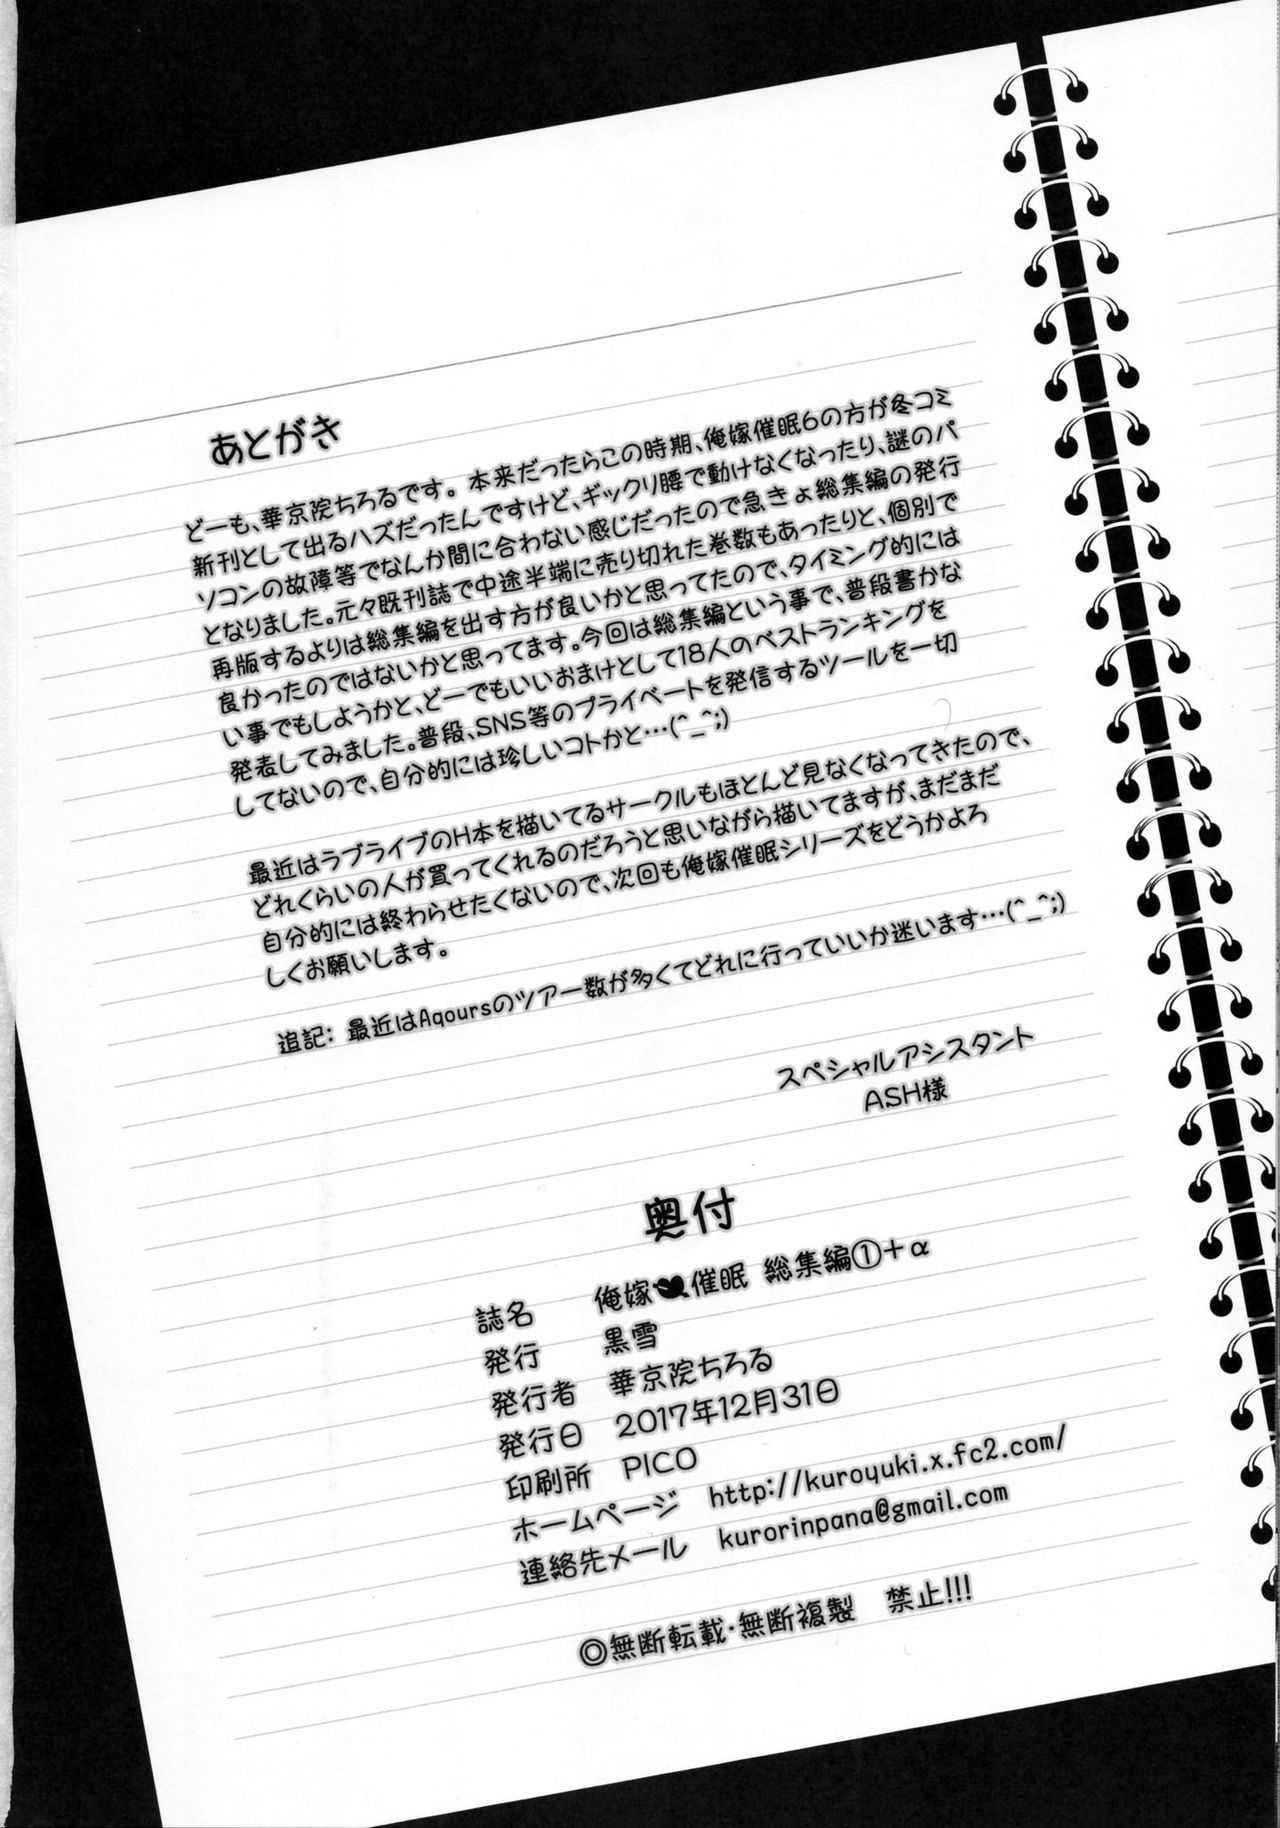 あとがき
どーも、華京院ちろるです。本来だったらこの時期、俺嫁催眠6の方が冬コミ
新刊として出るハズだったんですけど、ギックリ腰で動けなくなったり、謎のパ
ソコンの故障等でなんか間に合わない感じだったので急きょ総集編の発行
となりました。元々既刊誌で中途半端に売り切れた巻数もあったりと、個別で
再版するよりは総集編を出す方が良いかと思ってたので、タイミング的には
良かったのではないかと思ってます。今回は総集編という事で、普段書かな
い事でもしようかと、どーでもいいおまけとして18人のベストランキングを
発表してみました。普段、SNS等のプライベートを発信するツールを一切
してないので、自分的には珍しいコトかと…(^_^;)
最近はラブライブのH本を描いてるサークルもほとんど見なくなってきたので、
どれくらいの人が買ってくれるのだろうと思いながら描いてますが、まだまだ
自分的には終わらせたくないので、次回も俺嫁催眠シリーズをどうかよろ
しくお願いします。
追記: 最近はAqoursのツアー数が多くてどれに行っていいか迷います…(^_^;)
スペシャルアシスタント
ASH様
奥付
誌名 俺嫁催眠 総集編①+α
発行 黒雪
発行者 華京院ちろる
発行日 2017年12月31日
印刷所 PICO
ホームページ http://kuroyuki.x.fc2.com/
連絡先メール kurorinpana@gmail.com
◎無断転載・無断複製 禁止!!!